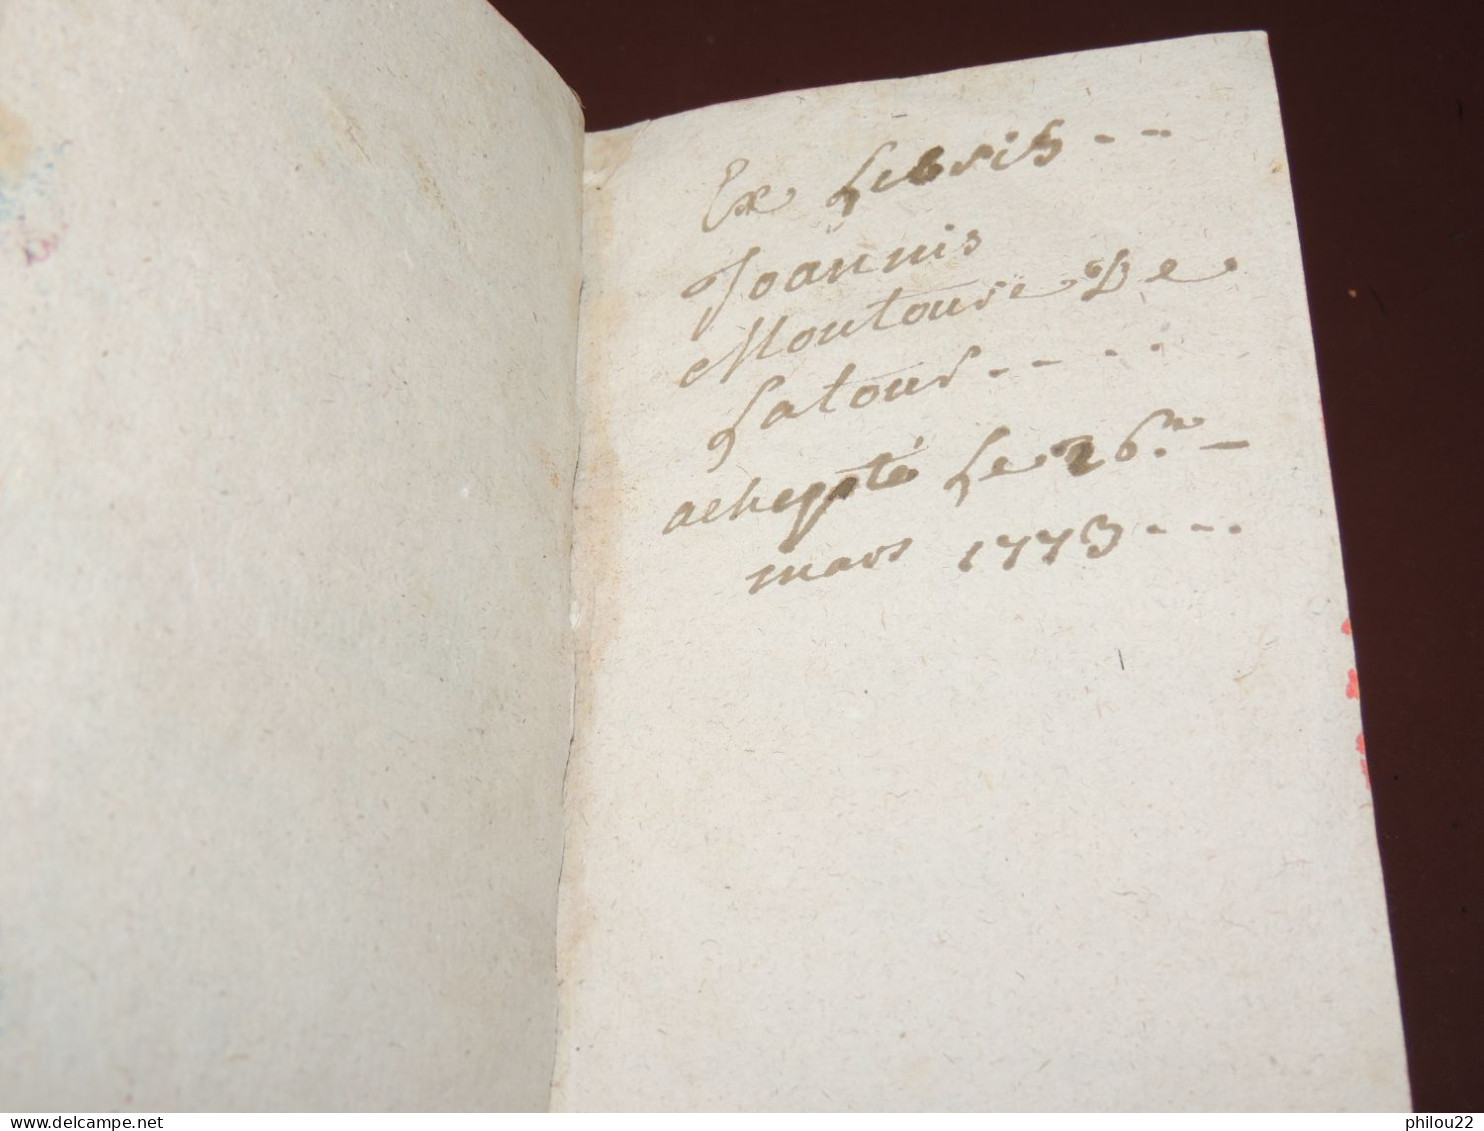 Ex Lebris - -
Joannis
Moutoure De
Latour - - - -
acheppté Le 26.e -
mars 1773 - - -
www.delcampe.net
philou22